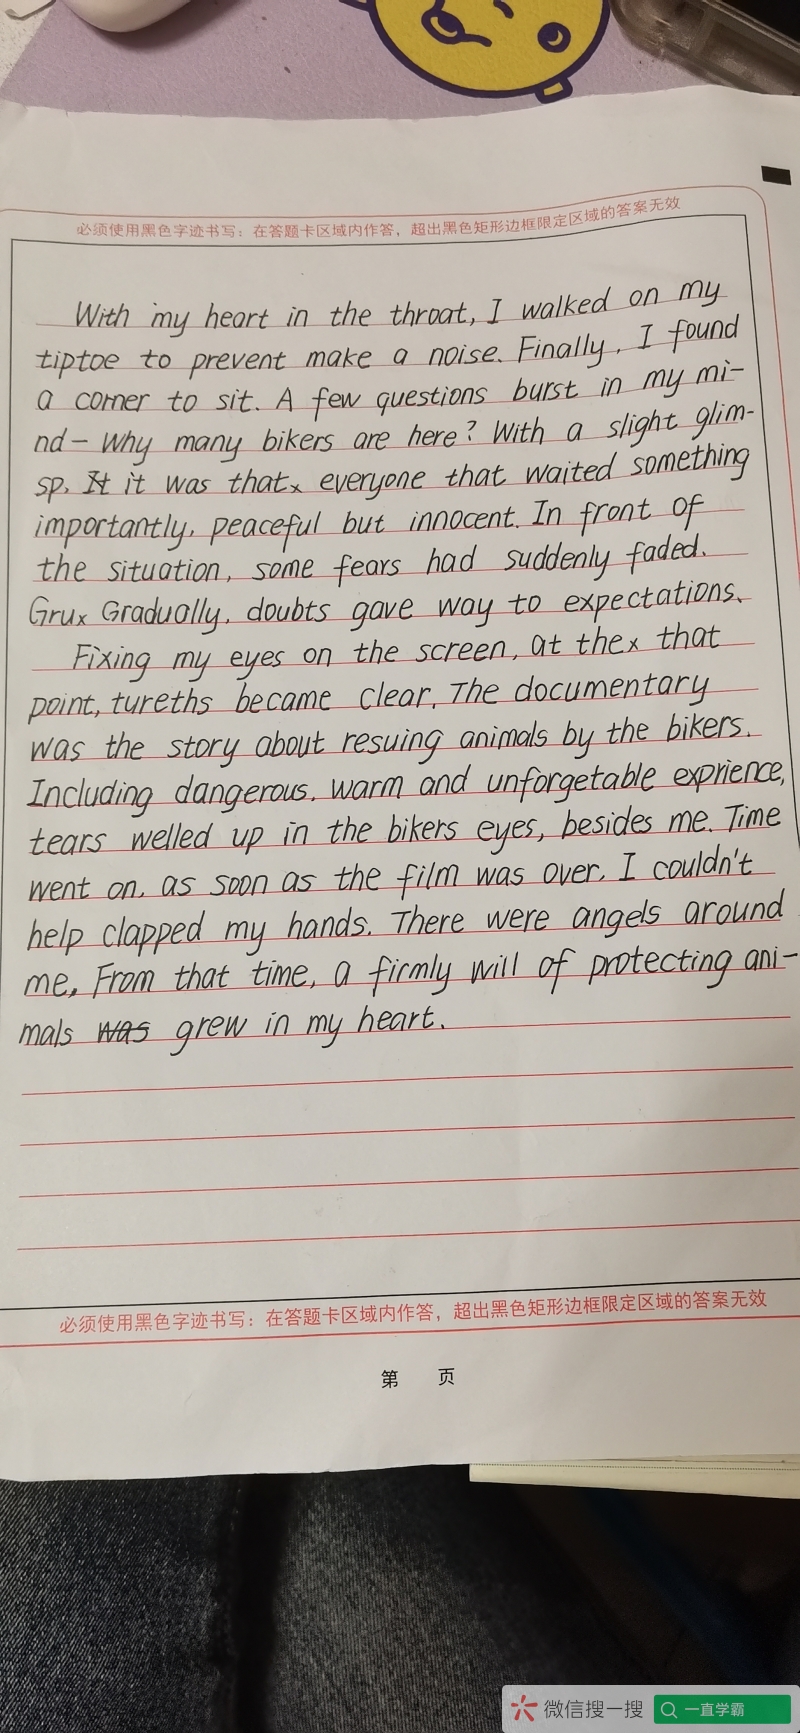 必须使用黑色字迹书写：在答题卡区域内作答，超出黑色矩形边框限定区域的答案无效
With my heart in the throat, I walked on my
tiptoe to prevent make a noise. Finally, I found
a corner to sit. A few questions burst in my mi-
nd - Why many bikers are here? With a slight glim-
sp. It it was that everyone that waited something
importantly, peaceful but innocent. In front of
the situation, some fears had suddenly faded.
Gru Gradually, doubts gave way to expectations.
Fixing my eyes on the screen, at the that
point, tureths became clear. The documentary
was the story about resuing animals by the bikers.
Including dangerous, warm and unforgetable exprience,
tears welled up in the bikers eyes, besides me. Time
went on, as soon as the film was over, I couldn't
help clapped my hands. There were angels around
me. From that time, a firmly will of protecting ani-
mals was grew in my heart.
必须使用黑色字迹书写：在答题卡区域内作答，超出黑色矩形边框限定区域的答案无效
第 页
微信搜一搜 一直学霸